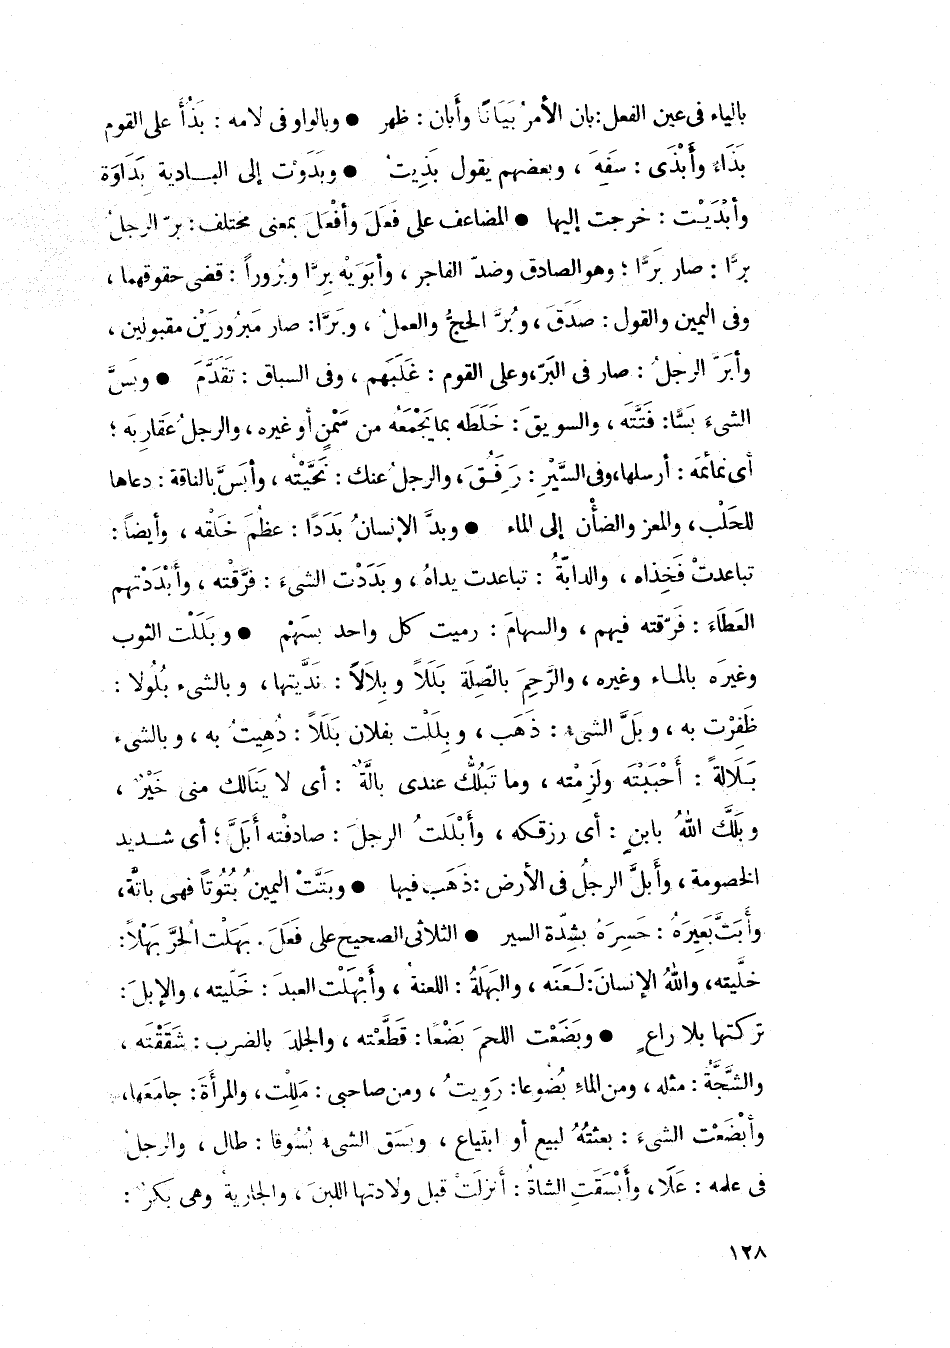 بالياء فى عين الفعل : بان الأمرُ بَيَانًا وأَبان : ظهر ● وبالواو فى لامه : بَذُأَ على القوم
بَذَاءً وأَبْذَى : سفَهِ ، وبعضهم يقول بَذِيتُ ● وبَدَوْت إلى البــادية بَدَاوَة
وأَبْدَيْت : خرجت إليها ● المضاعف على فَعَلَ وأفْعَلَ بمعنى مختلف : برّ الرجلُ
بِرًّا : صار بَرًّا ؛ وهو الصادق وضدّ الفاجر ، وأبَوَيْه بِرًّا وبُروراً : قضى حقوقهما ،
وفى اليمين والقول : صَدَقَ ، وبُرَّ الحجُّ والعملُ ، وبَرَّا : صار مَبرُورَيْن مقبولين ،
وأبَرَّ الرجلُ : صار فى البَرّ، وعلى القوم : غَلَبَهم ، وفى السباق : تَقَدَّمَ ● وبَسَّ
الشىءَ بَسًّا : فَتَّتَه ، والسويقَ : خَلَطَه بما يَجْمَعُه من سَمْنٍ أو غيره ، والرجلُ عَقَارِبَه ؛
أى نمائمَه : أرسلها، وفى السَّيْرِ : رَفُقَ ، والرجلُ عنك : نَحَّيْتُه ، وأبَسَّ بالناقة : دعاها
للحَلْب، والمعز والضأْن إلى الماء ● وبدَّ الإنسانُ بَدَدًا : عظُمَ خَلقْه ، وأيضاً :
تباعدتْ فَخِذاه ، والدابّةُ : تباعدت يداهُ ، وبَدَدْت الشىءَ : فرَّقْته ، وأَبْدَدْتهم
العَطَاءَ : فَرّقته فيهم ، والسهامَ : رميت كل واحد بسَهْم ● وبَلَلْت الثوب
وغيرَه بالمـاء وغيره ، والرَّحِمَ بالصِّلَة بَلَلاً وبِلاَلاً : نَدَّيتها ، وبالشىء بُلُولا :
ظَفِرْت به ، وبَلَّ الشىءُ : ذَهَب ، وبِلَلْت بفلان بَلَلاً : دُهِيتُ به ، وبالشىء
بَلَالةً : أَحْبَبْتَه ولَزِمْته ، وما تَبُلُّك عندى بالَّةٌ : أى لا يَنَالك منى خَيْرٌ ،
وبَلَّك اللهُ بابنٍ : أى رزقكه ، وأَبْلَلتُ الرجلَ : صادفْته أَبَلَّ ؛ أى شـديد
الخصومة ، وأَبلَّ الرجلُ فى الأرض : ذَهَب فيها ● وبَتَّتْ اليمينُ بُتُوتاً فهى باتَّة ،
وأَبَتَّ بَعِيرَهُ : حَسِرَهُ بشِدّة السير ● الثلاثى الصحيح على فَعَلَ . بهَلْت الحُرَّ بَهْلاً :
خلَّيته ، واللهُ الإنسانَ : لَعَنَه ، والبَهَلَةُ : اللعنةُ ، وأَبْهَلْت العبدَ : خَلّيته ، والإبلَ :
تركتها بلا راعٍ ● وبَضَعْت اللحمَ بَضْعًا : قَطَّعْته ، والجلدَ بالضرب : شَقَقْته ،
والشَّجَّةُ : مثله ، ومن الماءِ بُضُوعا : رَوِيتُ ، ومن صاحبى : مَلِلْت، والمرأَةَ : جامَعَها،
وأبْضَعْت الشىءَ : بعثتُهُ لبيع أو ابتياع ، وبَسَق الشىءُ بُسُوقا : طال ، والرجلُ
فى علمه : عَلَا ، وأَبْسَقَتِ الشاةُ : أنزلَتْ قبل ولادتها اللبنَ ، والجاريةُ وهى بكرٌ :
١٢٨